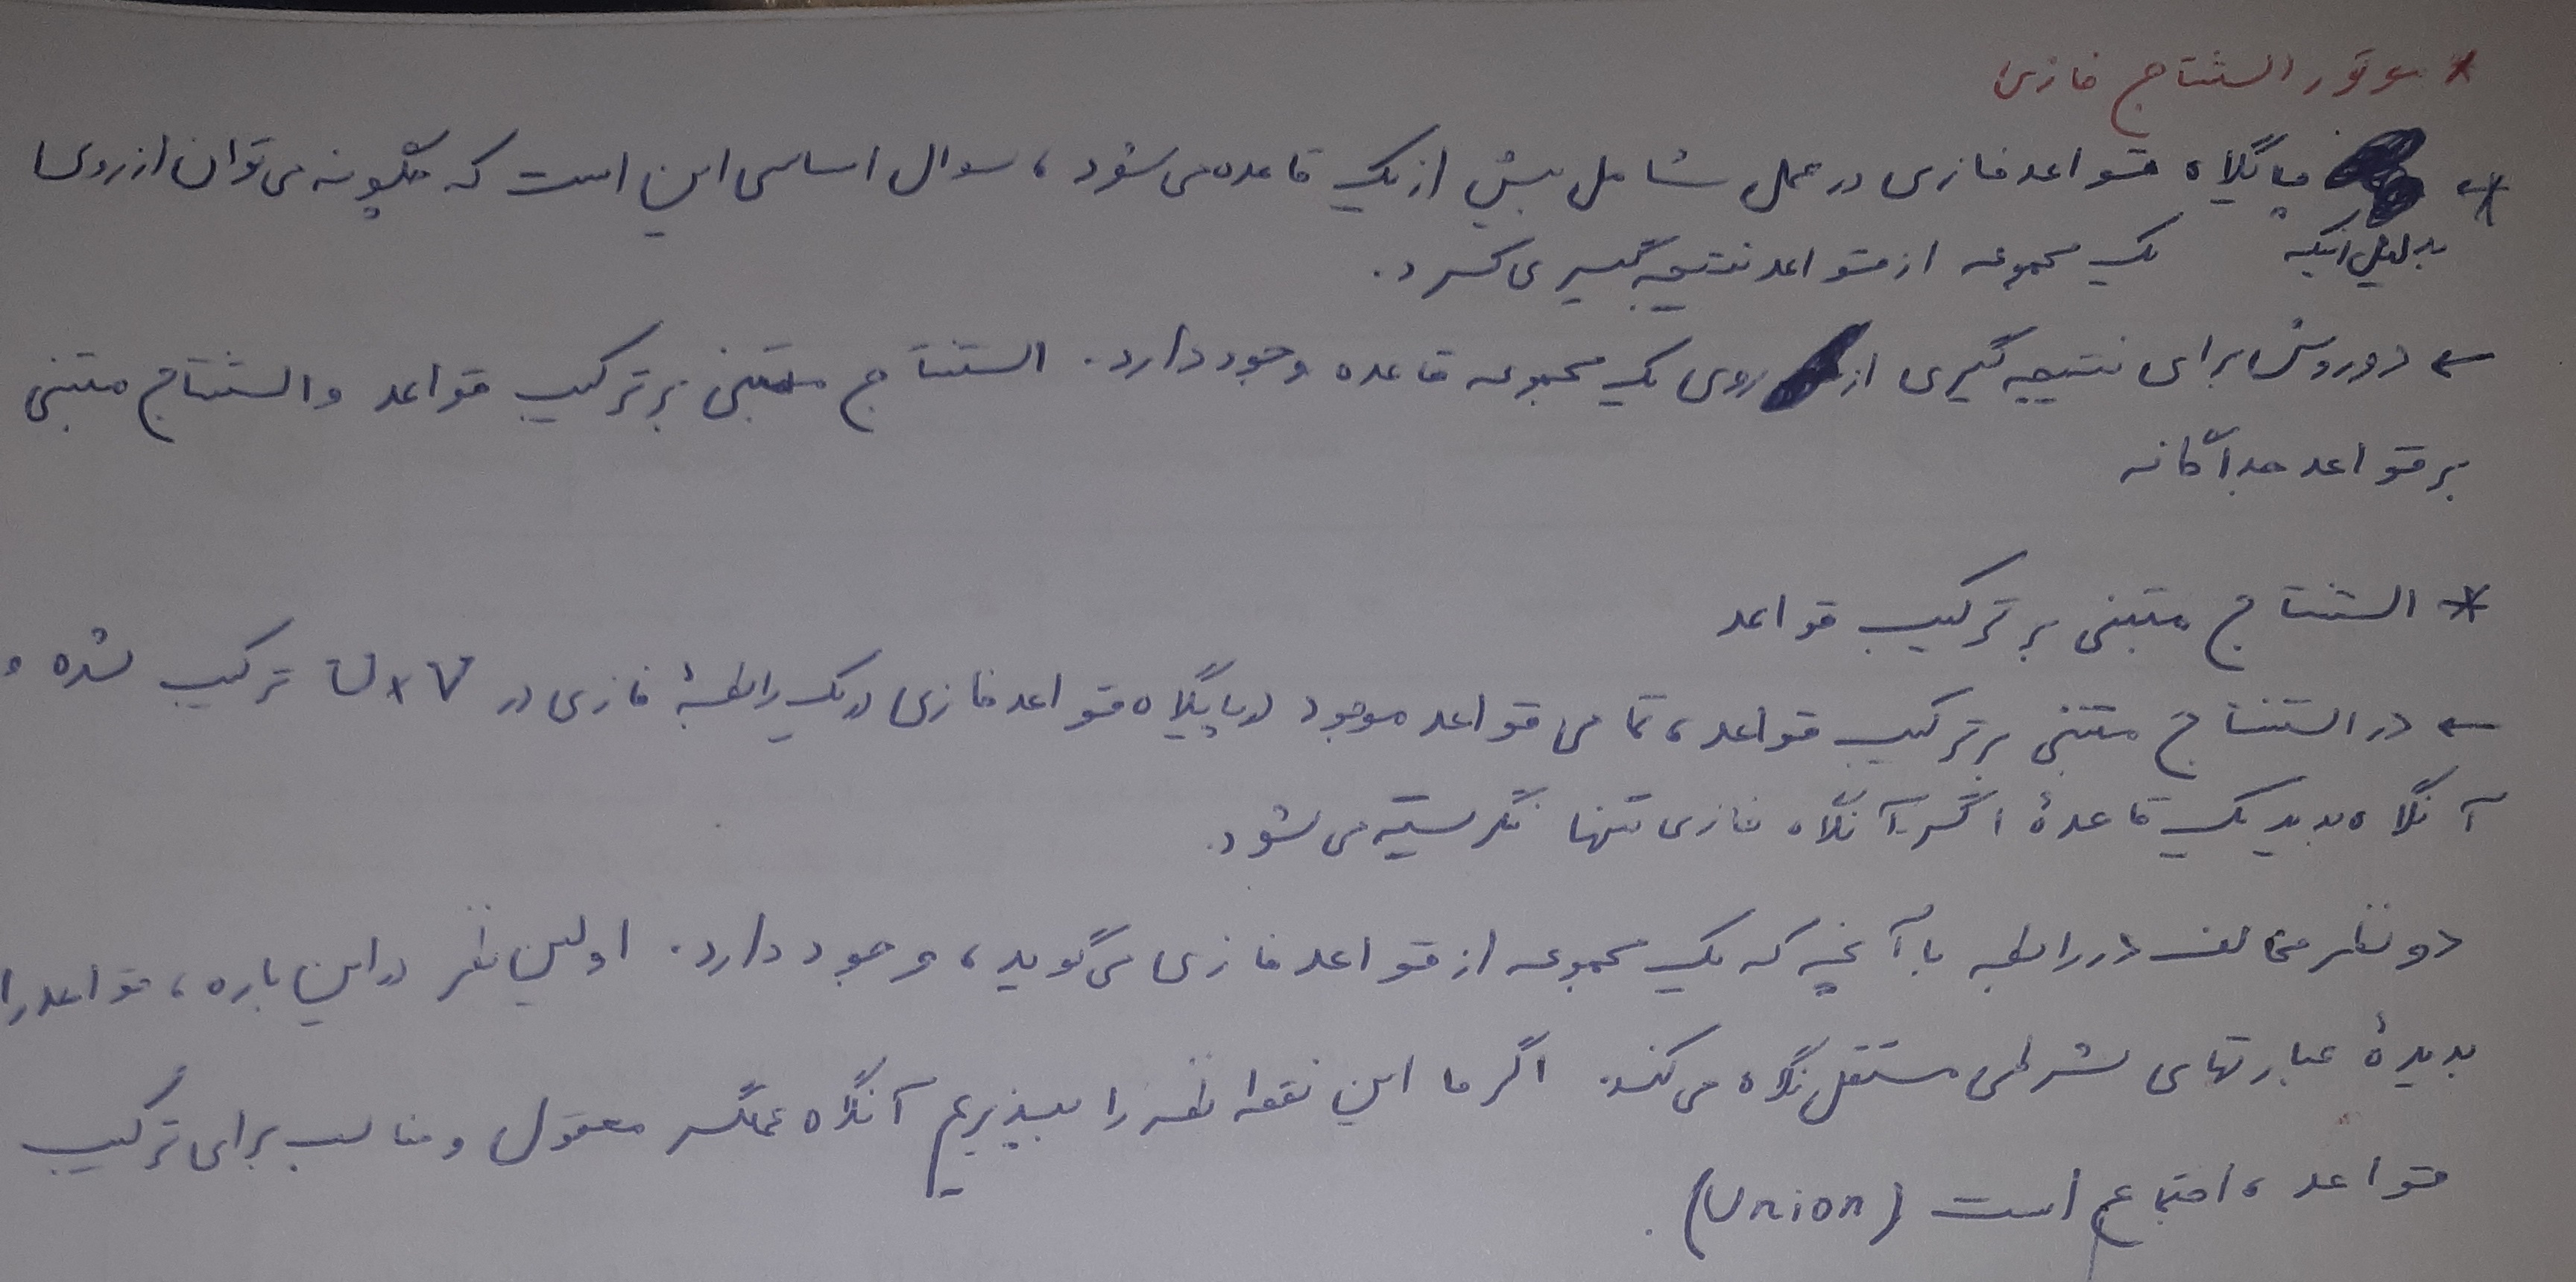 * موتور استنتاج فازی
* پایگاه قواعد فازی در عمل شامل بیش از یک قاعده می‌شود، سوال اساسی این است که چگونه می‌توان از روی
به دلیل اینکه یک مجموعه از قواعد نتیجه گیری کرد.
← دو روش برای نتیجه گیری از روی یک مجموعه قاعده وجود دارد. استنتاج مبتنی بر ترکیب قواعد و استنتاج مبتنی
بر قواعد جداگانه
* استنتاج مبتنی بر ترکیب قواعد
← در استنتاج مبتنی بر ترکیب قواعد، تمامی قواعد موجود در پایگاه قواعد فازی در یک رابطهٔ فازی در U×V ترکیب شده و
آنگاه به دید یک قاعدهٔ اگر-آنگاه فازی تنها نگریسته می‌شود.
دو نظر مخالف در رابطه با آنچه که یک مجموعه از قواعد فازی می‌گوید، وجود دارد. اولین نظر در این باره، قواعد را
به دیدهٔ عبارتهای شرطی مستقل نگاه می‌کند. اگر ما این نقطه نظر را بپذیریم آنگاه عملگر معقول و مناسب برای ترکیب
قواعد، اجتماع است (Union).